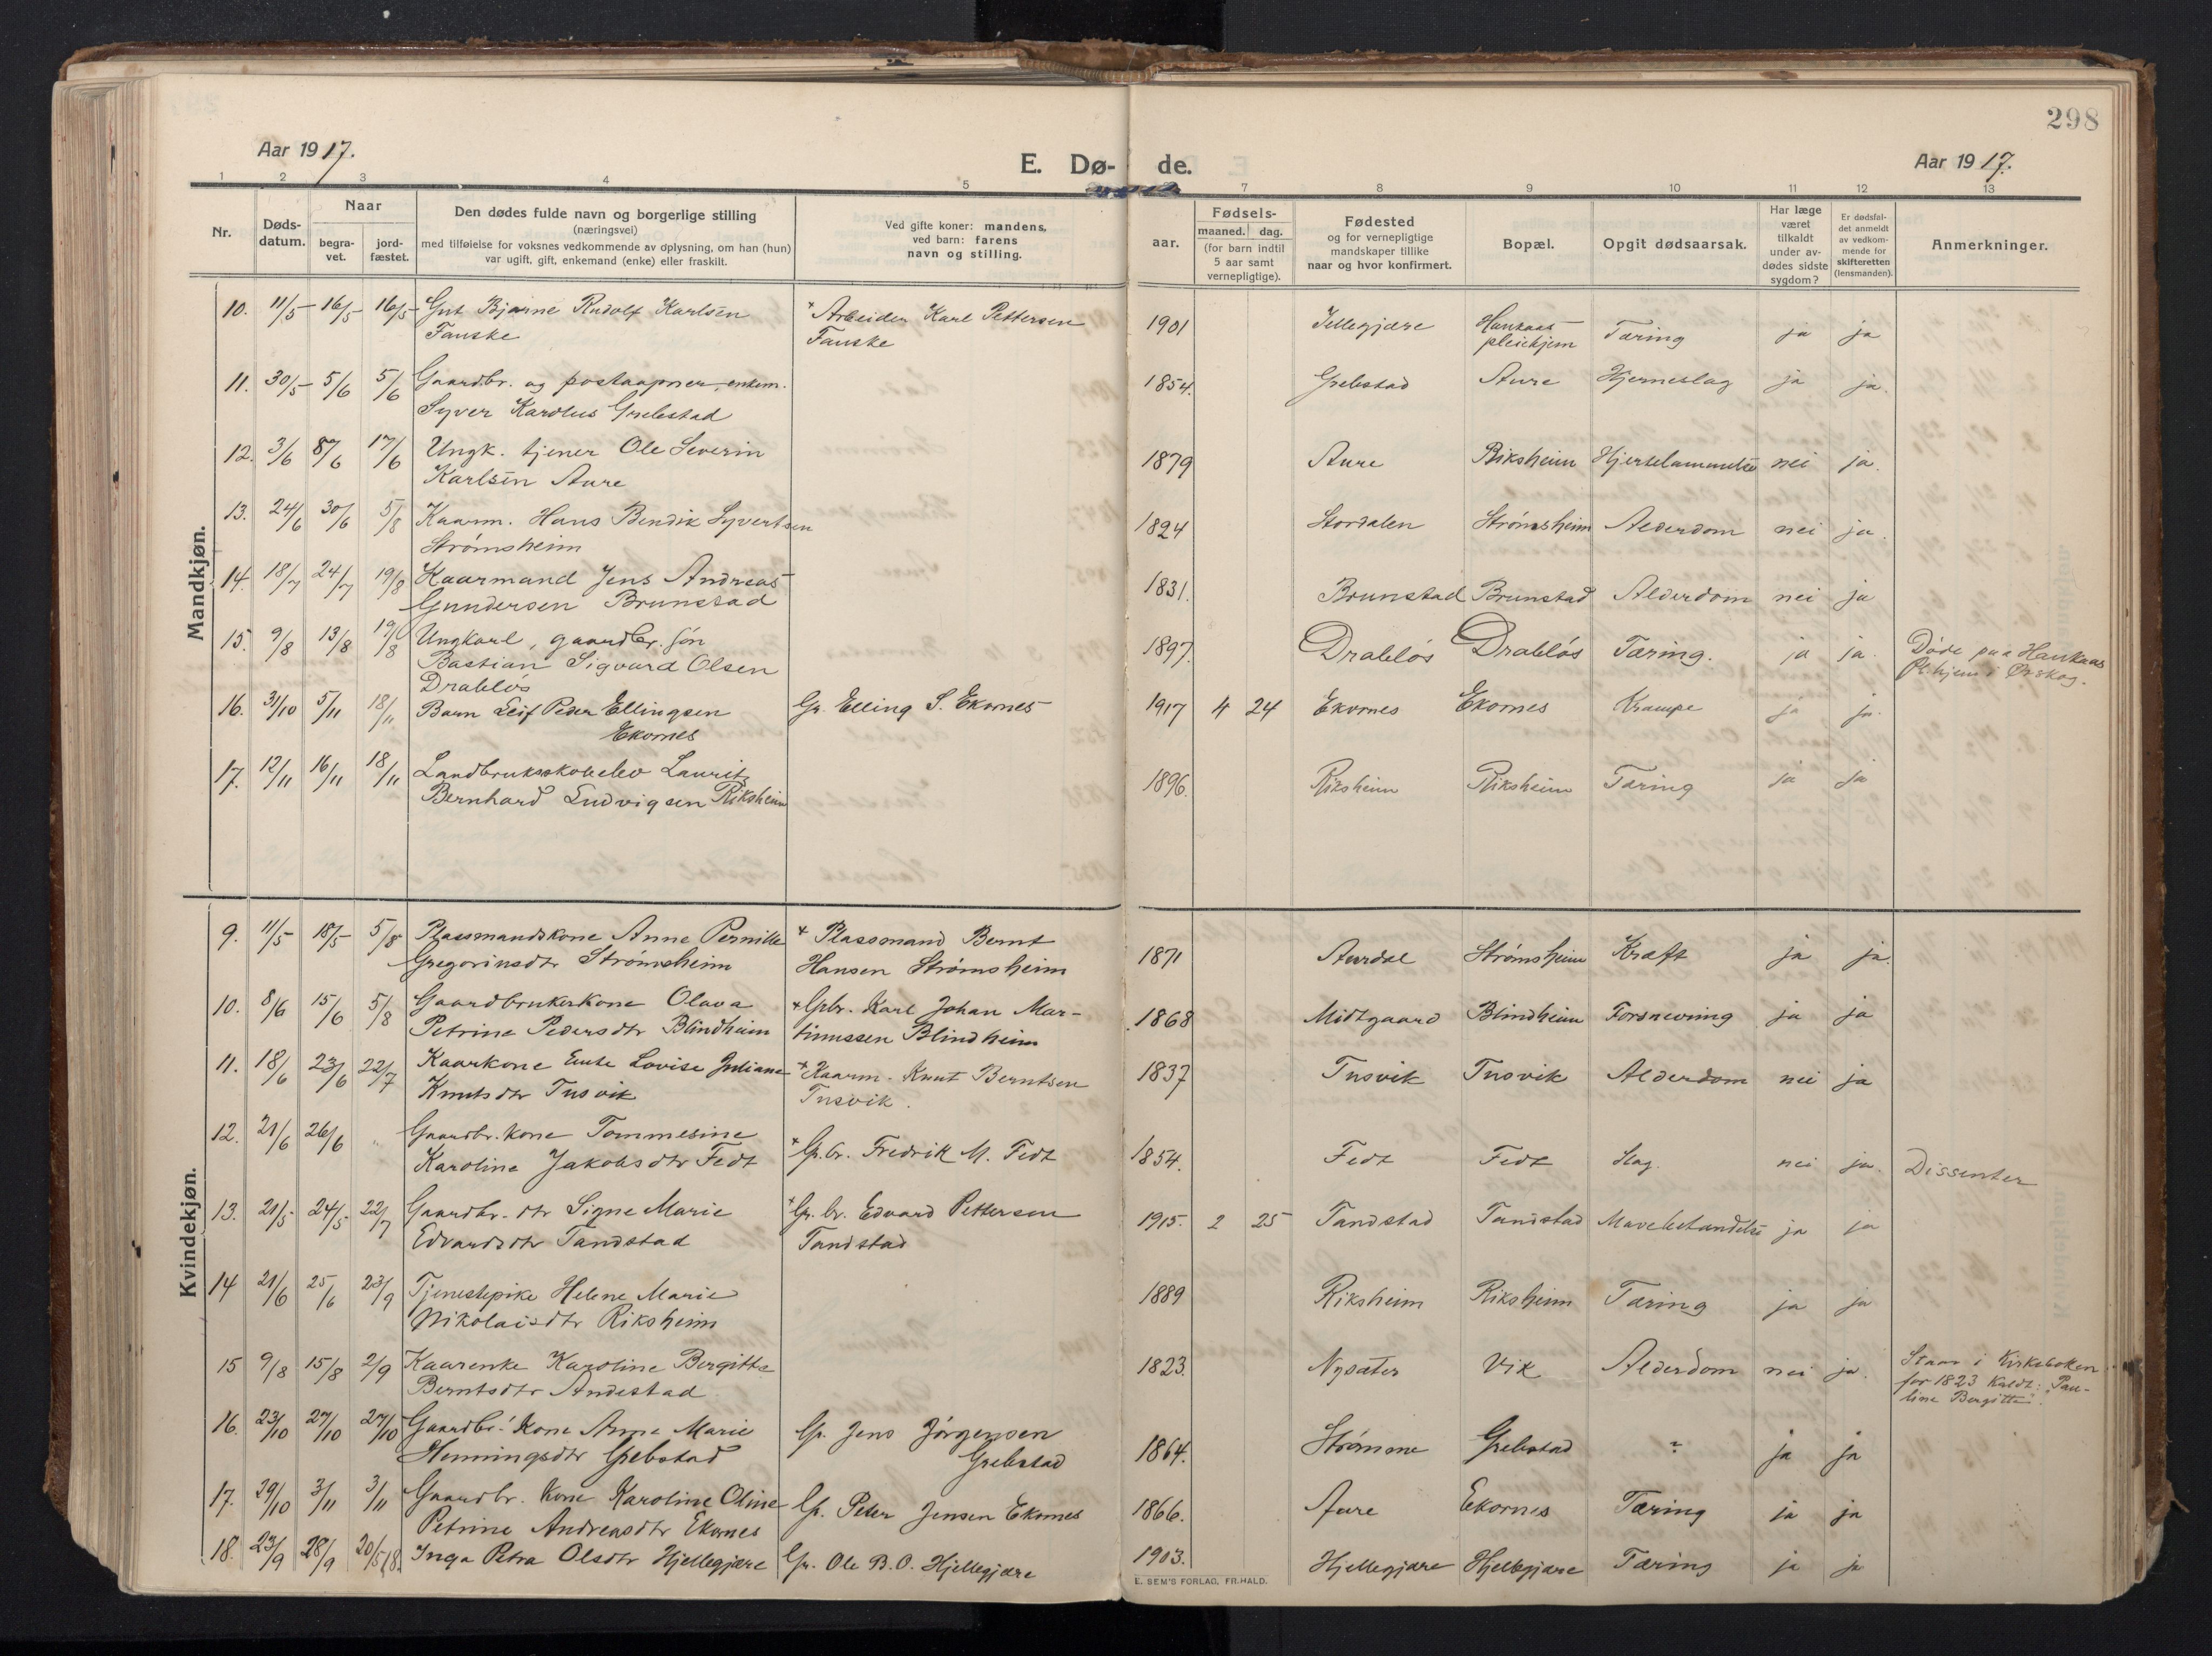 298
Aar 1917.
E. Dø- de.
Aar 1917.
1 2 3 4 5 7 8 9 10 11 12 13
Nr.
Døds-
datum.
Naar
begra-
vet.
jord-
fæstet.
Den dødes fulde navn og borgerlige stilling
(næringsvei)
med tilføielse for voksnes vedkommende av oplysning, om han (hun)
var ugift, gift, enkemand (enke) eller fraskilt.
Ved gifte koner: mandens,
ved barn: farens
navn og stilling.
aar.
Fødsels-
maaned. dag.
(for barn indtil
5 aar samt
vernepligtige).
Fødested
og for vernepligtige
mandskaper tillike
naar og hvor konfirmert.
Bopæl.
Opgit dødsaarsak.
Har læge
været
tilkaldt
under av-
dødes sidste
sygdom?
Er dødsfal-
det anmeldt
av vedkom-
mende for
skifteretten
(lensmanden).
Anmerkninger.
Mandkjøn.
10. 11/5 16/5 16/5 Gut Bjarne Rudolf Karlsen + Arbeider Karl Pettersen 1901 Jellegjære Haukaas Tæring ja ja
Fauske Fauske pleiehjem
11. 30/5 5/6 5/6 Gaardbr. og postaapner, enkem. 1854. Grebstad Aure Hjerneslag ja ja.
Syver Karolus Grebstad
12. 3/6 8/6 17/6 Ungk. tjener Ole Severin 1879 Aure Riksheim Hjertelammelse nei ja.
Karlsen Aure
13. 24/6 30/6 5/8 Kaarm. Hans Bendik Syvertsen 1824 Stordalen Strømsheim Alderdom nei ja.
Strømsheim
14. 18/7 24/7 19/8 Kaarmand Jens Andreas 1831. Brunstad Brunstad Alderdom nei ja
Gundersen Brunstad
15. 9/8 13/8 19/8 Ungkarl, gaardbr. søn 1897. Drabløs Drabløs Tæring. ja ja. Døde paa Haukaas
Bastian Sigvard Olsen Pl.hjem i Ørskog.
Drabløs
16. 31/10 5/11 18/11 Barn Leif Peder Ellingsen Gr. Elling S. Ekornes 1917 4 24 Ekornes Ekornes Krampe ja ja.
Ekornes
17. 12/11 16/11 18/11 Landbruksskoleelev Laurits 1896. Riksheim Riksheim Tæring ja ja
Bernhard Ludvigsen Riksheim
Kvindekjøn.
9. 11/5 18/5 5/8 Plassmandskone Anne Pernille + Plassmand Bernt 1871 Aurdal Strømsheim Kræft ja ja.
Gregoriusdtr Strømsheim Hansen Strømsheim
10. 8/6 15/6 5/8 Gaardbrukerkone Olava + Gbr. Karl Johan Mar- 1868 Midtgaard Blindheim Forsnevring ja ja
Petrine Pedersdtr Blindheim tinussen Blindheim
11. 18/6 23/6 22/7 Kaarkone Lovise Juliane + Kaarm. Knut Berntsen 1837 Tusvik Tusvik Alderdom nei ja
Knutsdtr Tusvik Tusvik.
12. 21/6 26/6 " Gaardbr. kone Tommesine + G.br. Fredrik M. Fedt 1854. Fedt Fedt Slag. nei ja. Dissenter
Karoline Jakobsdtr Fedt
13. 21/5 24/5 22/7 Gaardbr. dtr Signe Marie + G.br. Edvard Pettersen 1915. 2 25 Tandstad Tandstad ja ja
Edvardsdtr Tandstad Tandstad
14 21/6 25/6 23/9 Tjenestepike Helene Marie 1889 Riksheim Riksheim Tæring ja ja
Nikolaisdtr Riksheim
15 9/8 15/8 2/9 Kaarenke Karoline Bergitte 1823. Nysæter Vik Alderdom nei ja. Staar i Kirkeboken
Berntsdtr Andestad for 1823 kaldt: Pau-
line Bergitte.
16. 23/10 27/10 27/10 Gaardbr. kone Anne Marie Gr. Jens Jørgensen 1864. Strømme Grebstad ? ja ja
Henningsdtr Grebstad Grebstad
17. 29/10 3/11 3/11 Gaardbr. kone Karoline Oline Gr. Peter Jensen Ekornes 1866. Aure Ekornes Tæring ja ja
Petrine Andreasdtr Ekornes
18. 23/9 28/9 20/5 18. Inga Petra Olsdtr Hjellegjære Gr. Ole B.O. Hjellegjære 1903. Hjellegjære Hjellegjære Tæring ja ja
E. SEM'S FORLAG, FR.HALD.